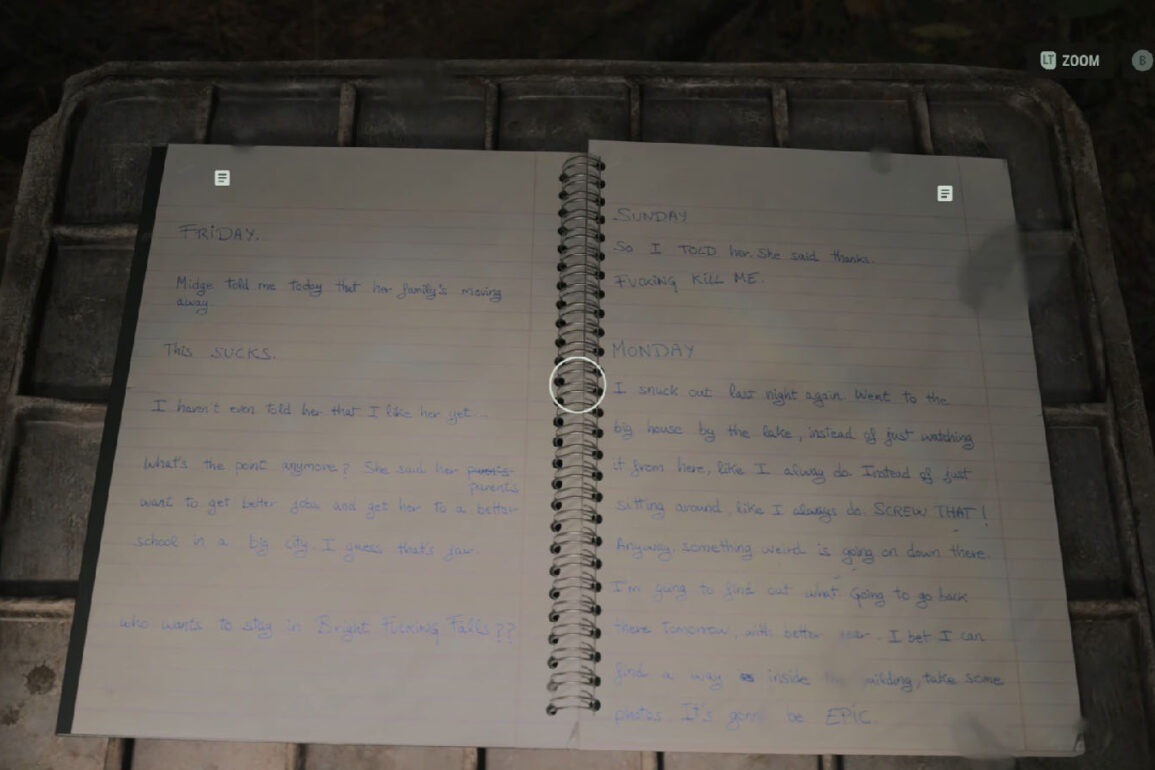 LT ZOOM B
FRIDAY.
Midge told me today that her family's moving
away.
This SUCKS.
I haven't even told her that I like her yet...
What's the point anymore? She said her
parents
want to get better jobs and get her to a better
school in a big city. I guess that's fair.
who wants to stay in Bright Fucking Falls??
SUNDAY
So I TOLD her. She said thanks.
FUCKING KILL ME.
MONDAY
I snuck out last night again. Went to the
big house by the lake, instead of just watching
it from here, like I always do. Instead of just
sitting around, like I always do. SCREW THAT!
Anyway, something weird is going on down there.
I'm going to find out what. Going to go back
there tomorrow, with better. I bet I can
find a way inside, take some
photos. It's be EPIC.